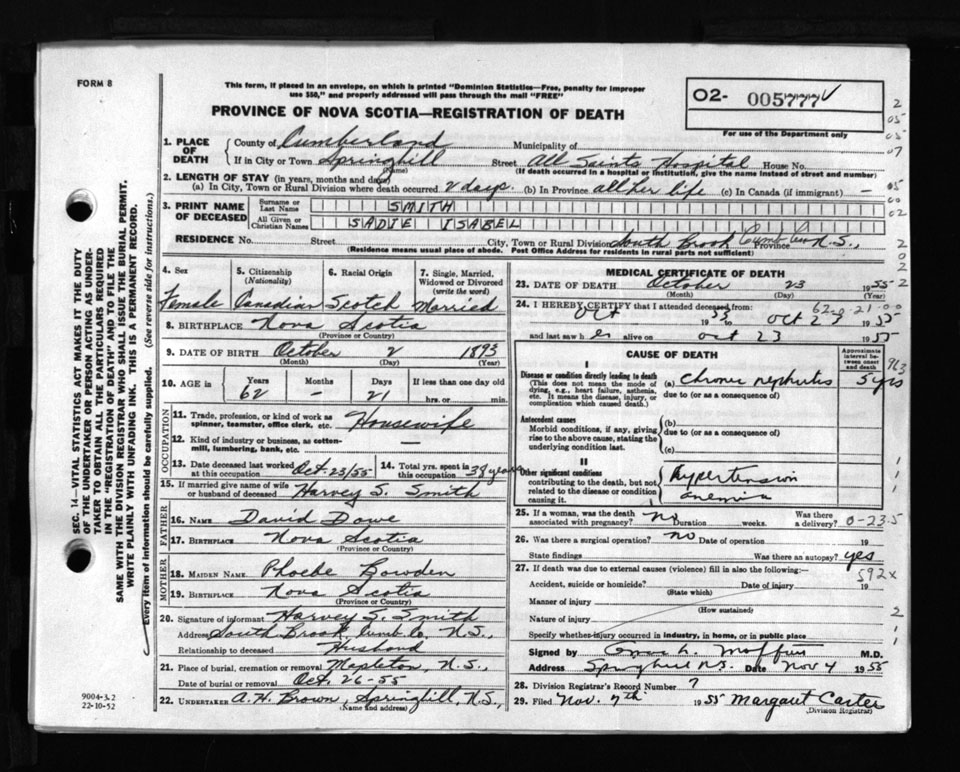 FORM 8
This form, if placed in an envelope, on which is printed "Dominion Statistics—Free, penalty for improper
use $50," and properly addressed will pass through the mail "FREE"
PROVINCE OF NOVA SCOTIA—REGISTRATION OF DEATH
02- 005777 V
For use of the Department only
1. PLACE OF DEATH
County of Cumberland Municipality of
If in City or Town Springhill Street All Saints Hospital House No.
(Name) (If death occurred in a hospital or institution, give the name instead of street and number)
2. LENGTH OF STAY (in years, months and days)
(a) In City, Town or Rural Division where death occurred 2 days. (b) In Province all her life (c) In Canada (if immigrant) —
3. PRINT NAME OF DECEASED
Surname or Last Name SMITH
All Given or Christian Names SADIE ISABEL
RESIDENCE No. Street City, Town or Rural Division South Brook Cumb Co N.S., Province
(Residence means usual place of abode. Post Office Address for residents in rural parts not sufficient)
4. Sex Female
5. Citizenship (Nationality) Canadian
6. Racial Origin Scotch
7. Single, Married, Widowed or Divorced (write the word) Married
8. BIRTHPLACE Nova Scotia
(Province or Country)
9. DATE OF BIRTH October 2 1893
(Month) (Day) (Year)
10. AGE in Years Months Days If less than one day old
62 – 21 hrs. or min.
OCCUPATION
11. Trade, profession, or kind of work as spinner, teamster, office clerk, etc. Housewife
12. Kind of industry or business, as cotton-mill, lumbering, bank, etc. —
13. Date deceased last worked at this occupation Oct. 23/55
14. Total yrs. spent in this occupation 38 years
15. If married give name of wife or husband of deceased Harvey S. Smith
FATHER
16. NAME David Dowe
17. BIRTHPLACE Nova Scotia
(Province or Country)
MOTHER
18. MAIDEN NAME Phoebe Bowden
19. BIRTHPLACE Nova Scotia
(Province or Country)
20. Signature of informant Harvey S. Smith
Address South Brook, Cumb Co, N.S.,
Relationship to deceased Husband
21. Place of burial, cremation or removal Mapleton, N.S.,
Date of burial or removal Oct. 26-55
22. UNDERTAKER A.H. Brown, Springhill, N.S.,
(Name and address)
MEDICAL CERTIFICATE OF DEATH
23. DATE OF DEATH October 23 1955
(Month) (Day) (Year)
24. I HEREBY CERTIFY that I attended deceased from
Oct 1955 to Oct 23 1955
and last saw h er alive on Oct 23 1955
CAUSE OF DEATH
Approximate interval between onset and death
I
Disease or condition directly leading to death
(This does not mean the mode of dying, e.g., heart failure, asthenia, etc. It means the disease, injury, or complication which caused death.)
(a) Chronic nephritis 5 yrs
due to (or as a consequence of)
Antecedent causes
Morbid conditions, if any, giving rise to the above cause, stating the underlying condition last.
(b)
due to (or as a consequence of)
(c)
II
Other significant conditions contributing to the death, but not related to the disease or condition causing it.
hypertension
anemia
25. If a woman, was the death associated with pregnancy? no Duration weeks. Was there a delivery?
26. Was there a surgical operation? no Date of operation 19
State findings Was there an autopsy? yes
27. If death was due to external causes (violence) fill in also the following:—
Accident, suicide or homicide? Date of injury 19
(State which)
Manner of injury
(How sustained)
Nature of injury
Specify whether injury occurred in industry, in home, or in public place
Signed by M.D.
Address Springhill N.S. Date Nov 4 1955
28. Division Registrar's Record Number 7
29. Filed Nov. 7th 1955 Margaret Carter
(Division Registrar)
SEC. 14—VITAL STATISTICS ACT MAKES IT THE DUTY
OF THE UNDERTAKER OR PERSON ACTING AS UNDER-
TAKER TO OBTAIN ALL THE PARTICULARS REQUIRED
IN THE "REGISTRATION OF DEATH" AND TO FILE THE
SAME WITH THE DIVISION REGISTRAR WHO SHALL ISSUE THE BURIAL PERMIT.
WRITE PLAINLY WITH UNFADING INK. THIS IS A PERMANENT RECORD.
Every item of information should be carefully supplied. (See reverse side for instructions.)
9004-3.2
22-10-52